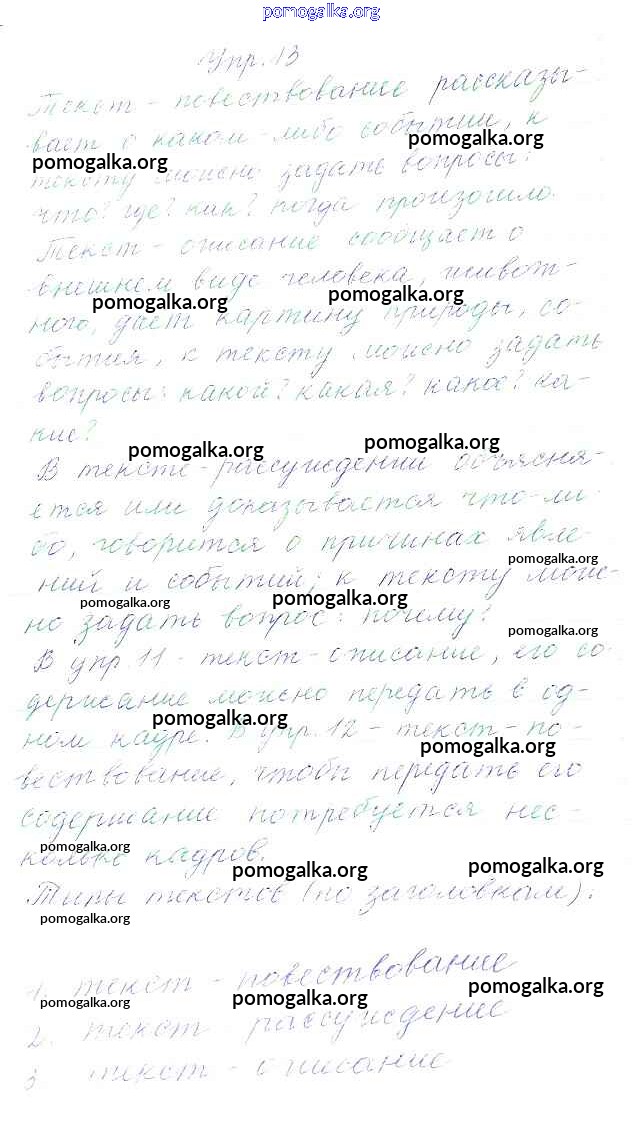 pomogalka.org
Упр. 13
Текст - повествование рассказы-
вает о каком-либо событии, к
pomogalka.org
pomogalka.org
тексту можно задать вопросы:
что? где? как? когда произошло.
Текст - описание сообщает о
внешнем виде человека, живот-
pomogalka.org
pomogalka.org
ного, даёт картину природы, со-
бытия, к тексту можно задать
вопросы: какой? какая? какое? ка-
кие?
pomogalka.org
pomogalka.org
В тексте-рассуждении объясня-
ется или доказывается что-ли-
бо, говорится о причинах явле-
pomogalka.org
ний и событий; к тексту мож-
pomogalka.org
pomogalka.org
но задать вопрос: почему?
pomogalka.org
В упр. 11 - текст-описание, его со-
держание можно передать в од-
pomogalka.org
ном кадре. В упр. 12 - текст - по-
pomogalka.org
вествование, чтобы передать его
содержание потребуется нес-
pomogalka.org
колько кадров.
pomogalka.org
pomogalka.org
Типы текстов (по заголовкам):
pomogalka.org
1. текст - повествование
pomogalka.org
pomogalka.org
pomogalka.org
2. текст - рассуждение
3 текст - описание